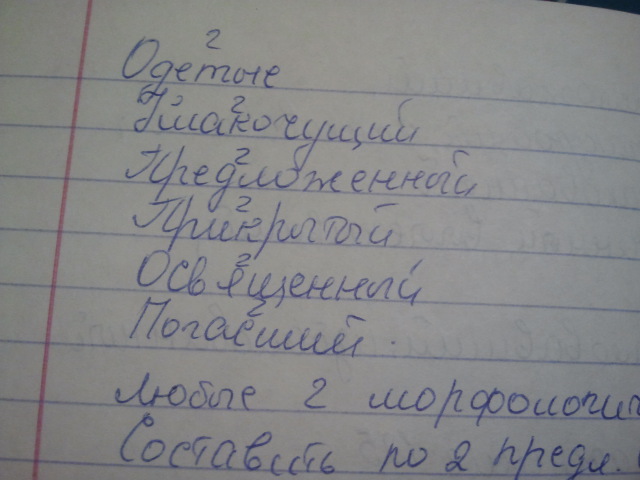 2
Одетые
2
2
Предложенный
2
Прикрытый
2
Освященный
2
Погасший .
Любые 2 морфологич
Составить по 2 предл.